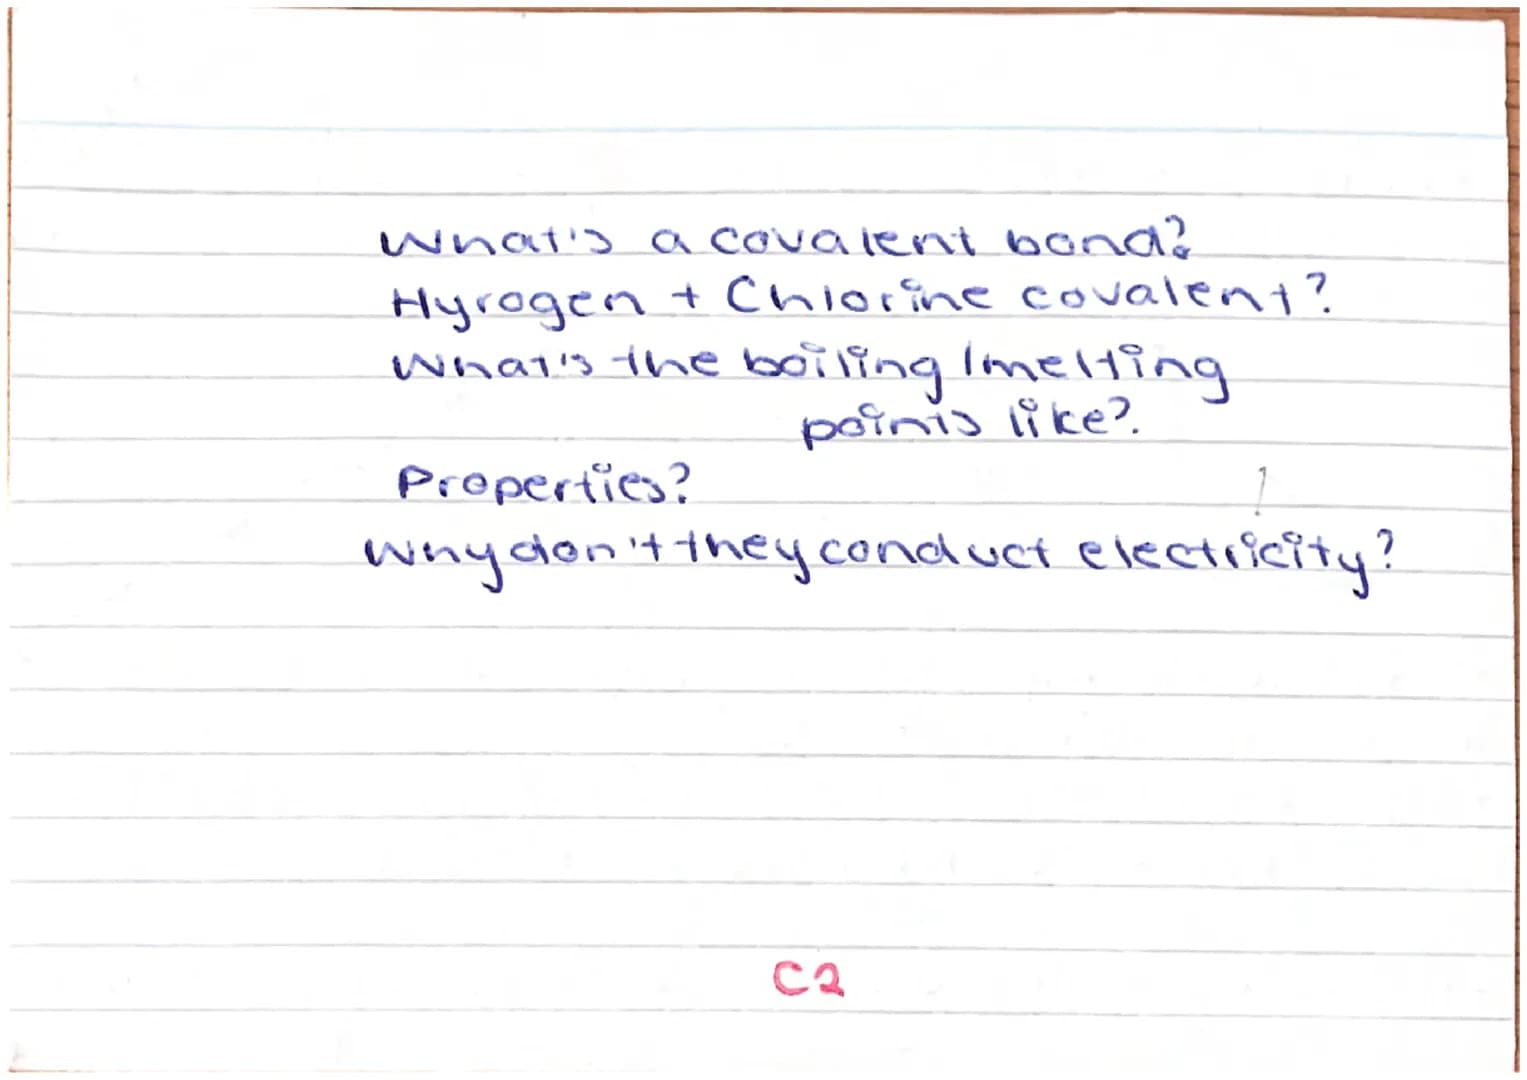 What's a covalent bond?
Hyrogen + Chlorine covalent?
What's the boiling/melting
points like?
Properties?
Why don't they conduct electricity?
C2